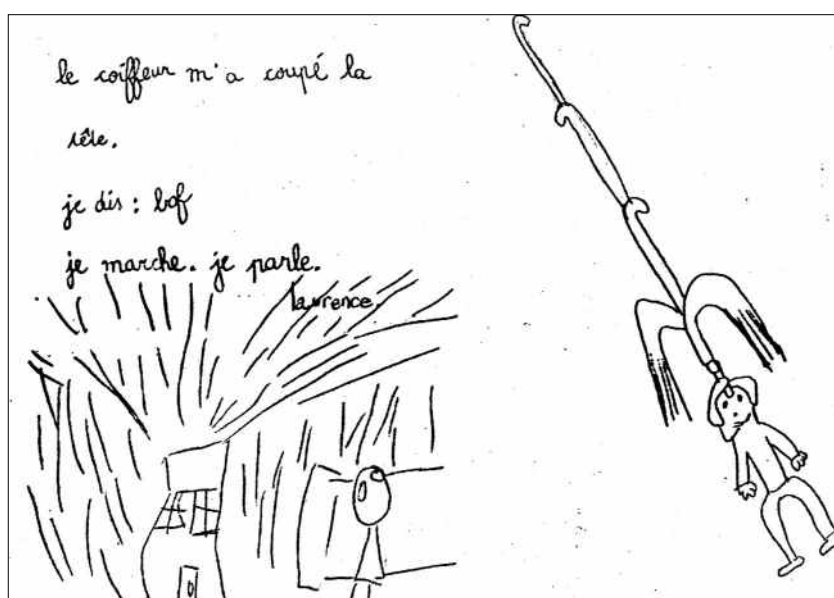 le coiffeur m'a coupé la
tête.
je dis : bof
je marche. je parle.
laurence.